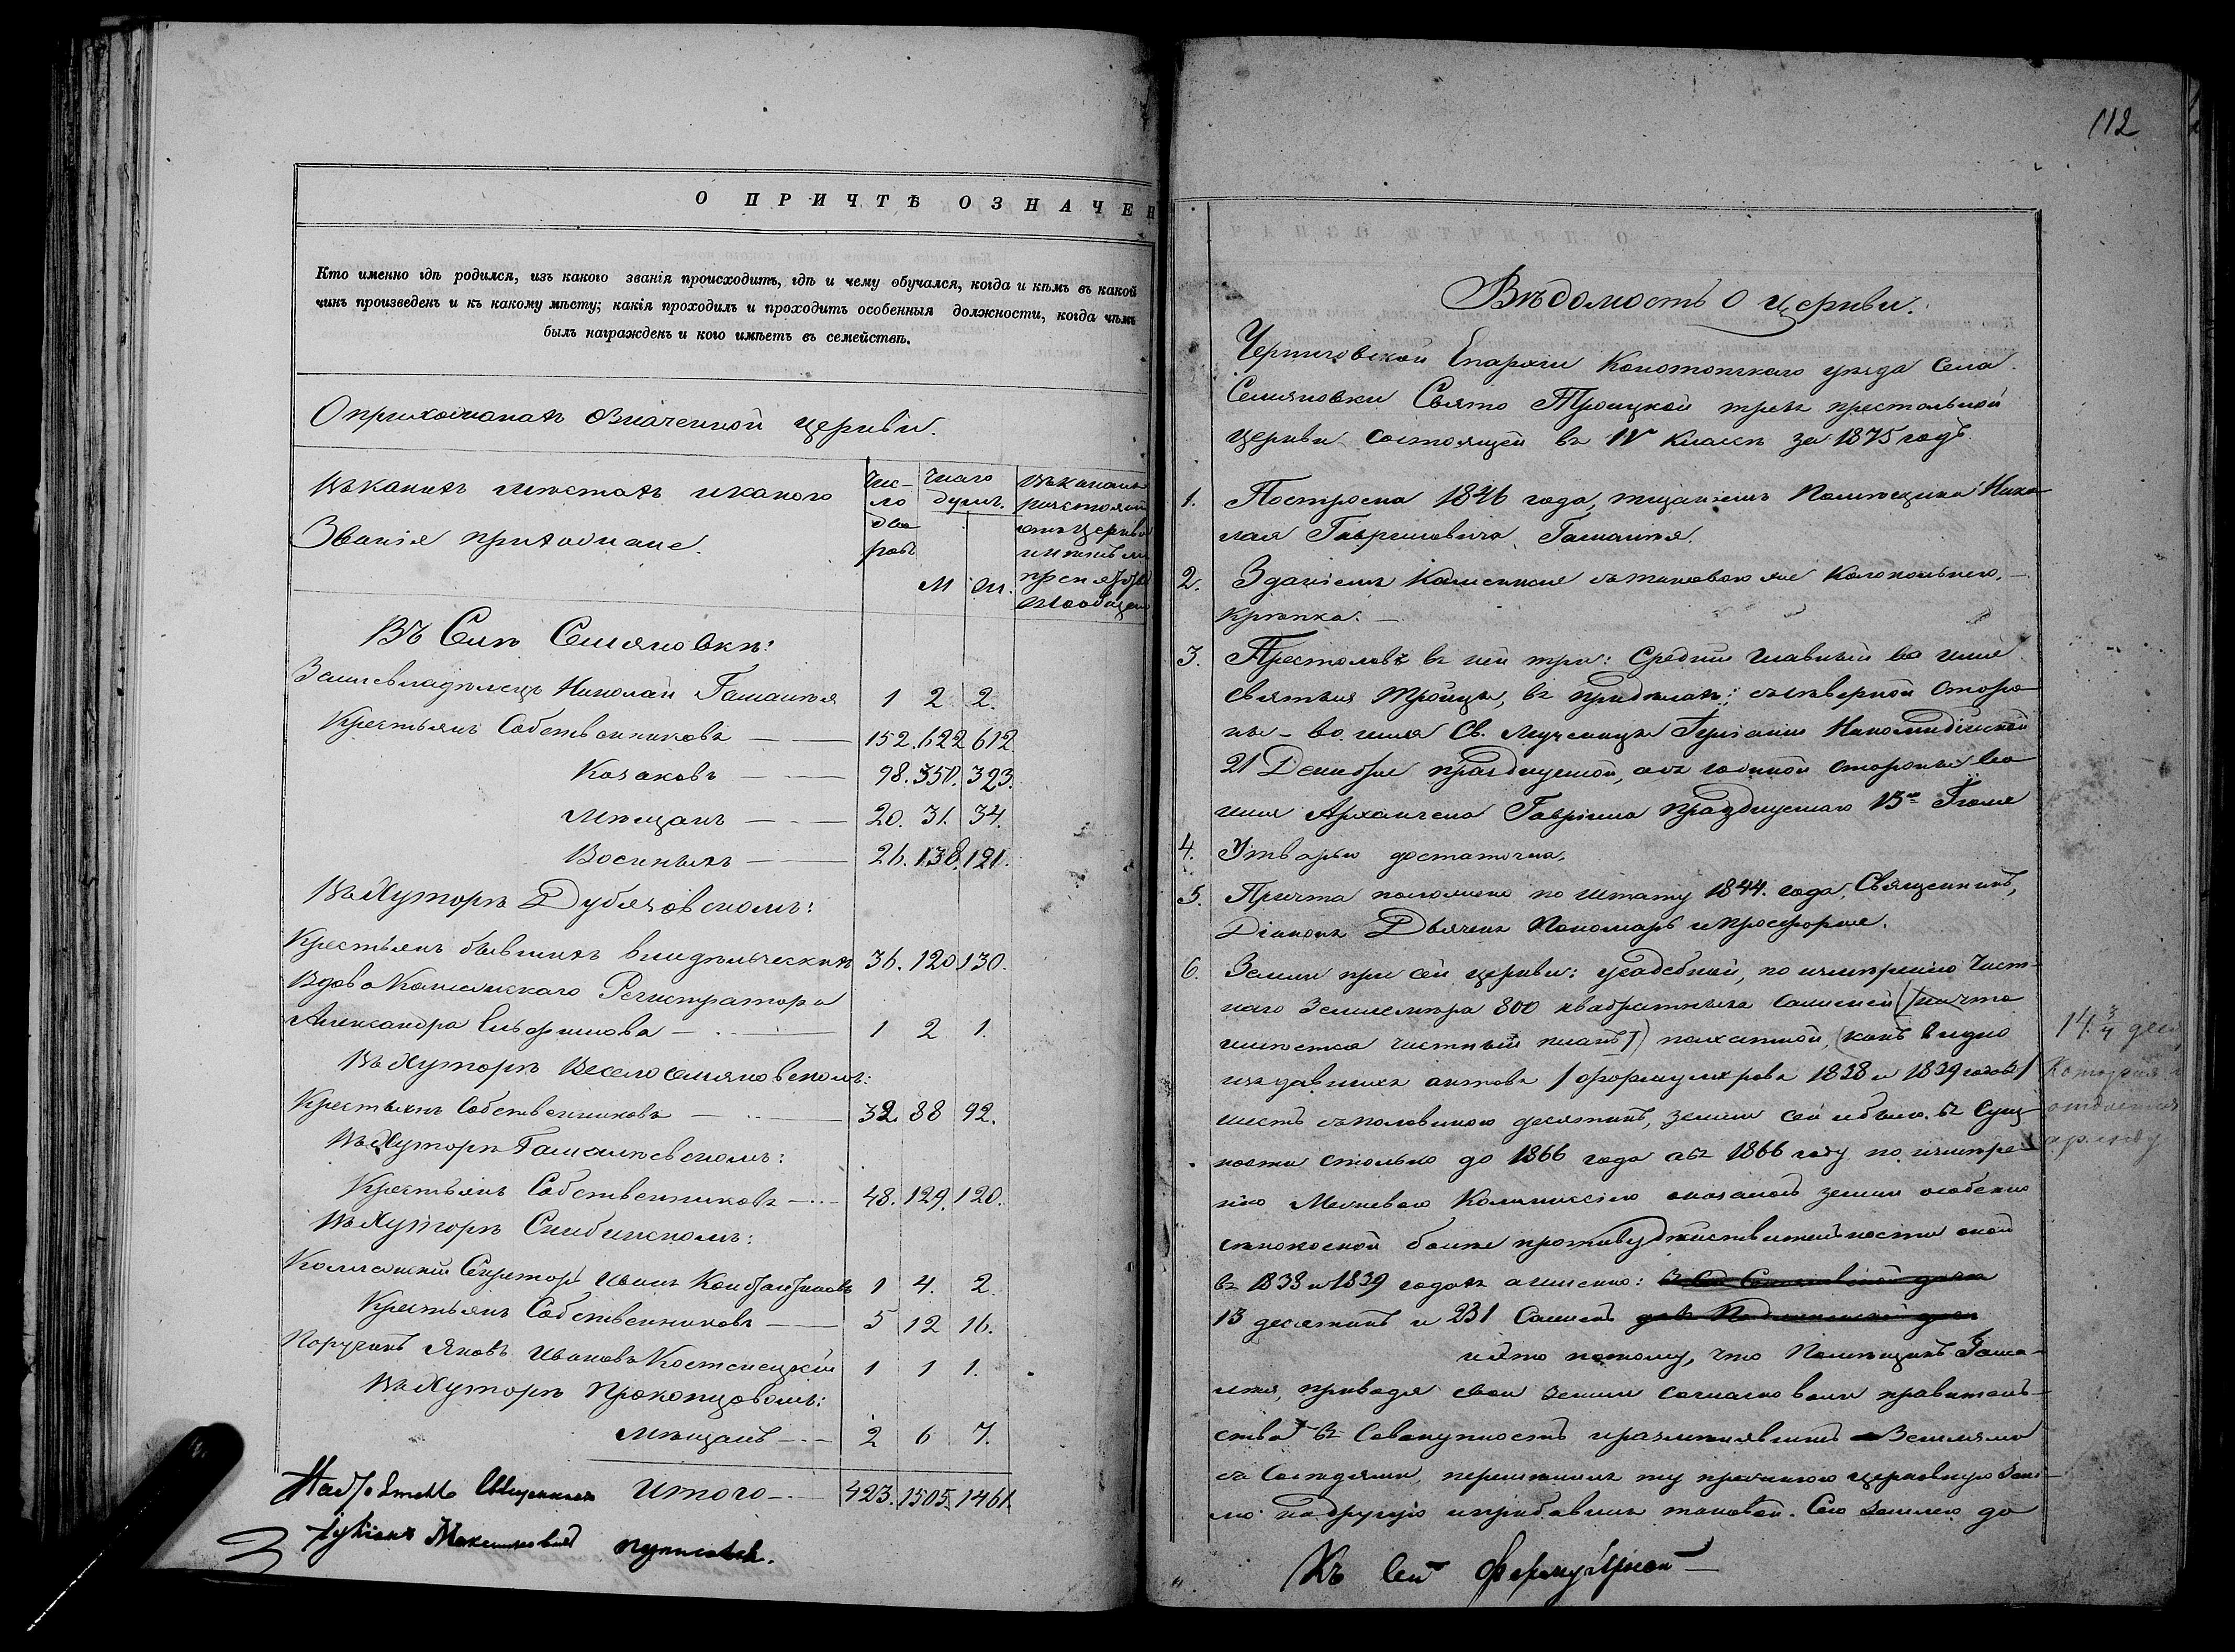 О ПРИЧТѢ ОЗНАЧЕН
Кто именно гдѣ родился, изъ какого званія происходитъ, гдѣ и чему обучался, когда и кѣмъ въ какой
чинъ произведенъ и къ какому мѣсту; какія проходилъ и проходитъ особенныя должности, когда чѣмъ
былъ награжденъ и кого имѣетъ въ семействѣ.
О прихожанахъ означенной церкви.
Въ какихъ мѣстахъ и какого
Званія прихожане.
Чис-
ло
дво
ровъ
Число
душъ.
М Ж.
Въ какомъ
разстояніи
отъ церкви
Въ Селѣ Семяновкѣ:
Землевладѣлецъ Николай Гамалѣя 1 2 2.
Крестьянъ Собственниковъ — 152. 622 612.
Козаковъ — 98. 350. 323.
Мѣщанъ — 20. 31. 34.
Военныхъ — 26. 138. 121.
Въ Хуторѣ Дубяховскомъ:
Крестьянъ бывшихъ владѣльческихъ 36. 120 130.
Вдова Коллежскаго Регистратора
Александра — 1 2 1.
Въ Хуторѣ Веселосемяновскомъ:
Крестьянъ Собственниковъ — 32. 88 92.
Въ Хуторѣ Гамалѣевскомъ:
Крестьянъ Собственниковъ — 48. 129. 120.
Въ Хуторѣ Скибинскомъ:
Коллежскій Секретарь Иванъ 1 4. 2.
Крестьянъ Собственниковъ — 5 12 16.
Поручикъ Яковъ Ивановъ Костенецкій 1 1 1.
Въ Хуторѣ Прокопцовомъ:
Мѣщанъ — 2 6 7.
Итого — 423. 1505. 1461.
Священникъ
112
Вѣдомость о церкви.
Черниговской Епархіи Конотопскаго уѣзда Села
Семяновки Свято Троицкой трехъ престольной
церкви состоящей въ IV классѣ за 1875 годъ
1. Построена 1846 года, тщаніемъ Помѣщика Нико-
лая Гавриловича Гамалѣя.
2. Зданіемъ каменная съ таковою же колокольнею.—
крѣпка.—
3. Престоловъ въ ней три: Средній главный во имя
Святыя Троицы, въ придѣлахъ: съ сѣверной сторо-
ны - во имя Св. Мученицы Іуліаніи Никомидійской
21 Декабря празднуемой, а съ южной стороны во
имя Архангела Гавріила празднуемаго 13го Іюля
4. Утварью достаточна.
5. Причта положено по штату 1844. года. Священникъ,
Діаконъ Дьячекъ Пономарь и просфорня.
6. Земли при сей церкви: усадебной, по измѣренію част-
наго Землемѣра 800 квадратныхъ саженей (на что
имѣется частный планъ) пахатной, (какъ видно
изъ давнихъ актовъ / формуляровъ 1838 и 1839 годовъ /
шесть съ половиною десятинъ, земли сей и было въ сущ-
ности столько до 1866 года а въ 1866 году по измѣре-
нію Межевою Коммиссіею оказалось земли особенно
сѣнокосной болѣе противу дѣйствительности оной
въ 1838 и 1839 годахъ а именно:
13 десятинъ и 231 Сажень
и это потому, что Помѣщикъ Гама-
лѣя, приводя свои земли согласно воли правитель-
ства въ Совокупность и размѣнявшись Землями
съ Сосѣдями, перемѣнилъ ту прежнюю церковную Зем-
лю на другую и прибавилъ таковой. Сею землею до
14 3/4 дес
Къ сей